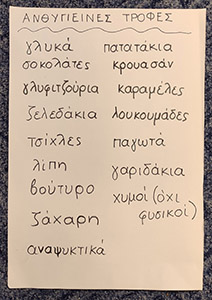 ΑΝΘΥΓΙΕΙΝΕΣ ΤΡΟΦΕΣ
γλυκά
σοκολάτες
γλυφιτζούρια
ζελεδάκια
τσίχλες
λίπη
βούτυρο
ζάχαρη
αναψυκτικά
πατατάκια
κρουασάν
καραμέλες
λουκουμάδες
παγωτά
γαριδάκια
χυμοί (όχι
φυσικοί)